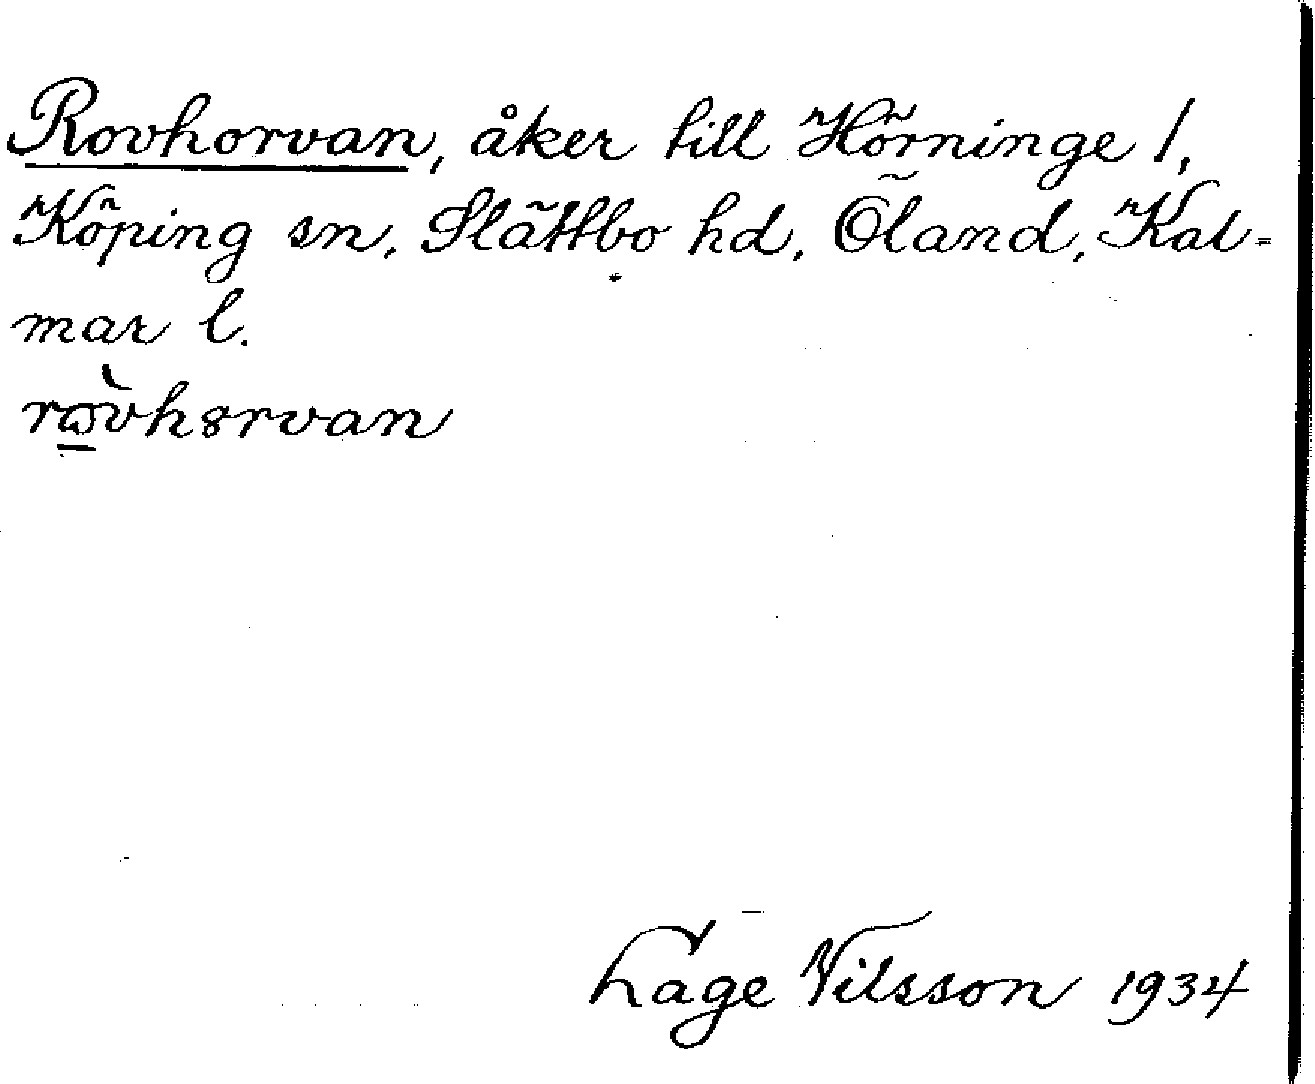 Rovhorvan, åker till Hörninge 1,
Köping sn, Slättbo hd, Öland, Kal-
mar l.
Lage Nilsson 1934